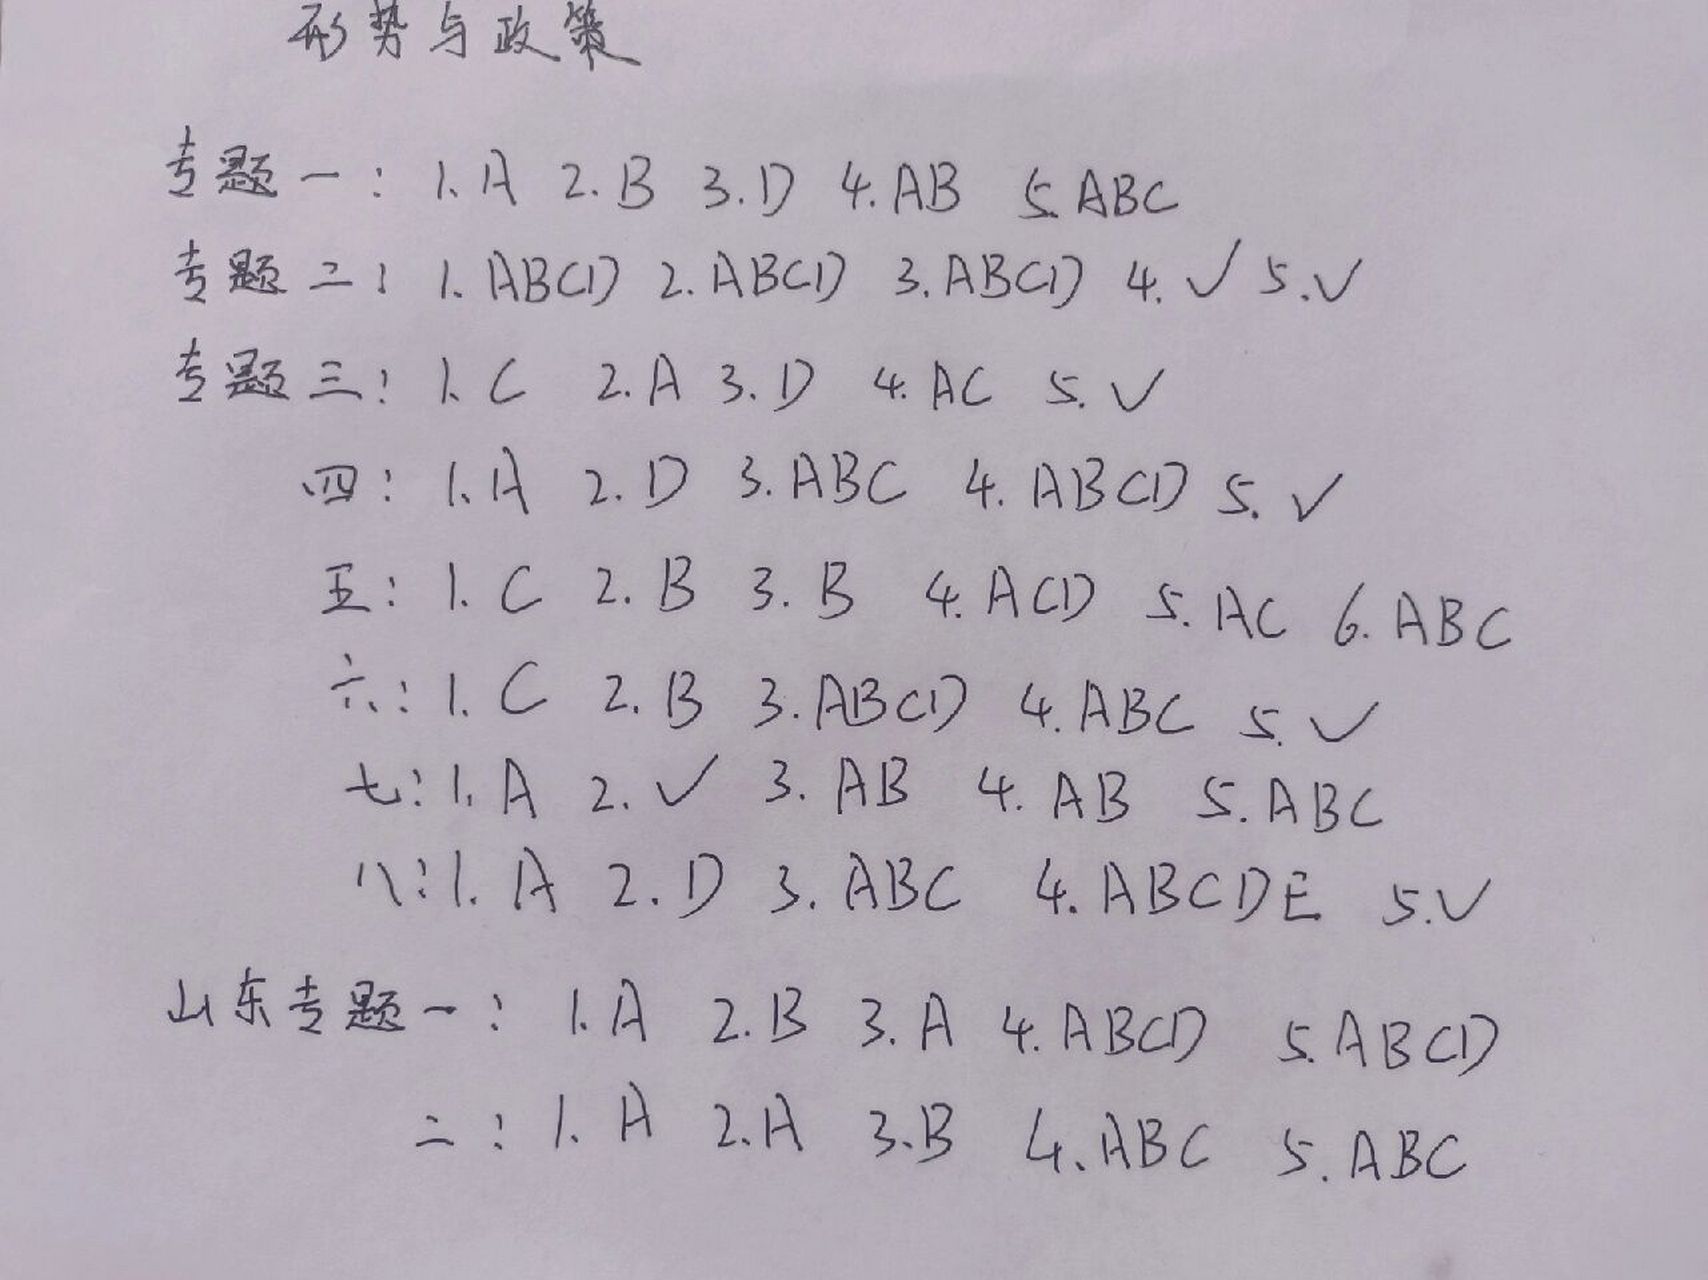 形势与政策
专题一: 1.A 2.B 3.D 4.AB 5.ABC
专题二: 1.ABCD 2.ABCD 3.ABCD 4.✓ 5.✓
专题三: 1.C 2.A 3.D 4.AC 5.✓
四: 1.A 2.D 3.ABC 4.ABCD 5.✓
五: 1.C 2.B 3.B 4.ACD 5.AC 6.ABC
六: 1.C 2.B 3.ABCD 4.ABC 5.✓
七: 1.A 2.✓ 3.AB 4.AB 5.ABC
八: 1.A 2.D 3.ABC 4.ABCDE 5.✓
山东专题一: 1.A 2.B 3.A 4.ABCD 5.ABCD
二: 1.A 2.A 3.B 4.ABC 5.ABC